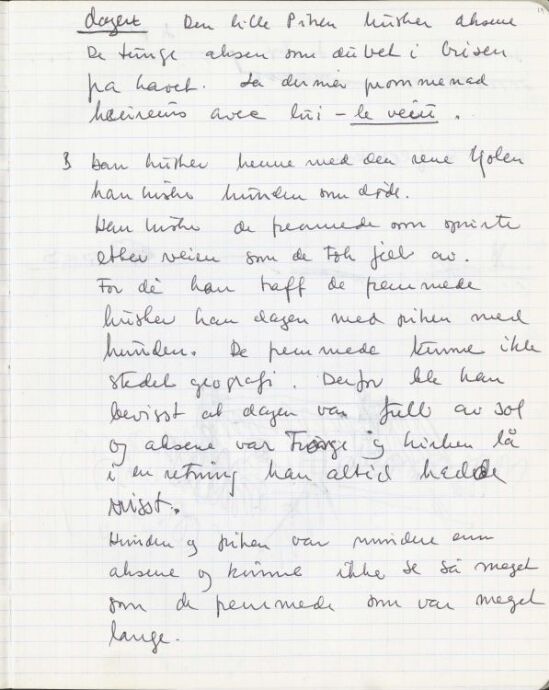 dagen Den lille Piken husker aksene
De tunge aksen som duvet i brisen
på havet. La dernier prommenad
heureus avec lui – le veiu.
3 Han husker henne med den rene kjolen
han husker hunden som døde.
Han husker de fremmede som spurte
etter veien som de Toh fjel av.
For de han traff de fremmede
husker han dagen med piken med
hunden. De fremmede kunne ikke
stedet geografi. Derfor ble han
bevisst at dagen var full av sol
og aksene var Tunge og kirken lå
i en retning han altid hadde
visst.
Hunden og piken var mindre enn
aksene og kunne ikke se så meget
som de fremmede som var meget
lange.